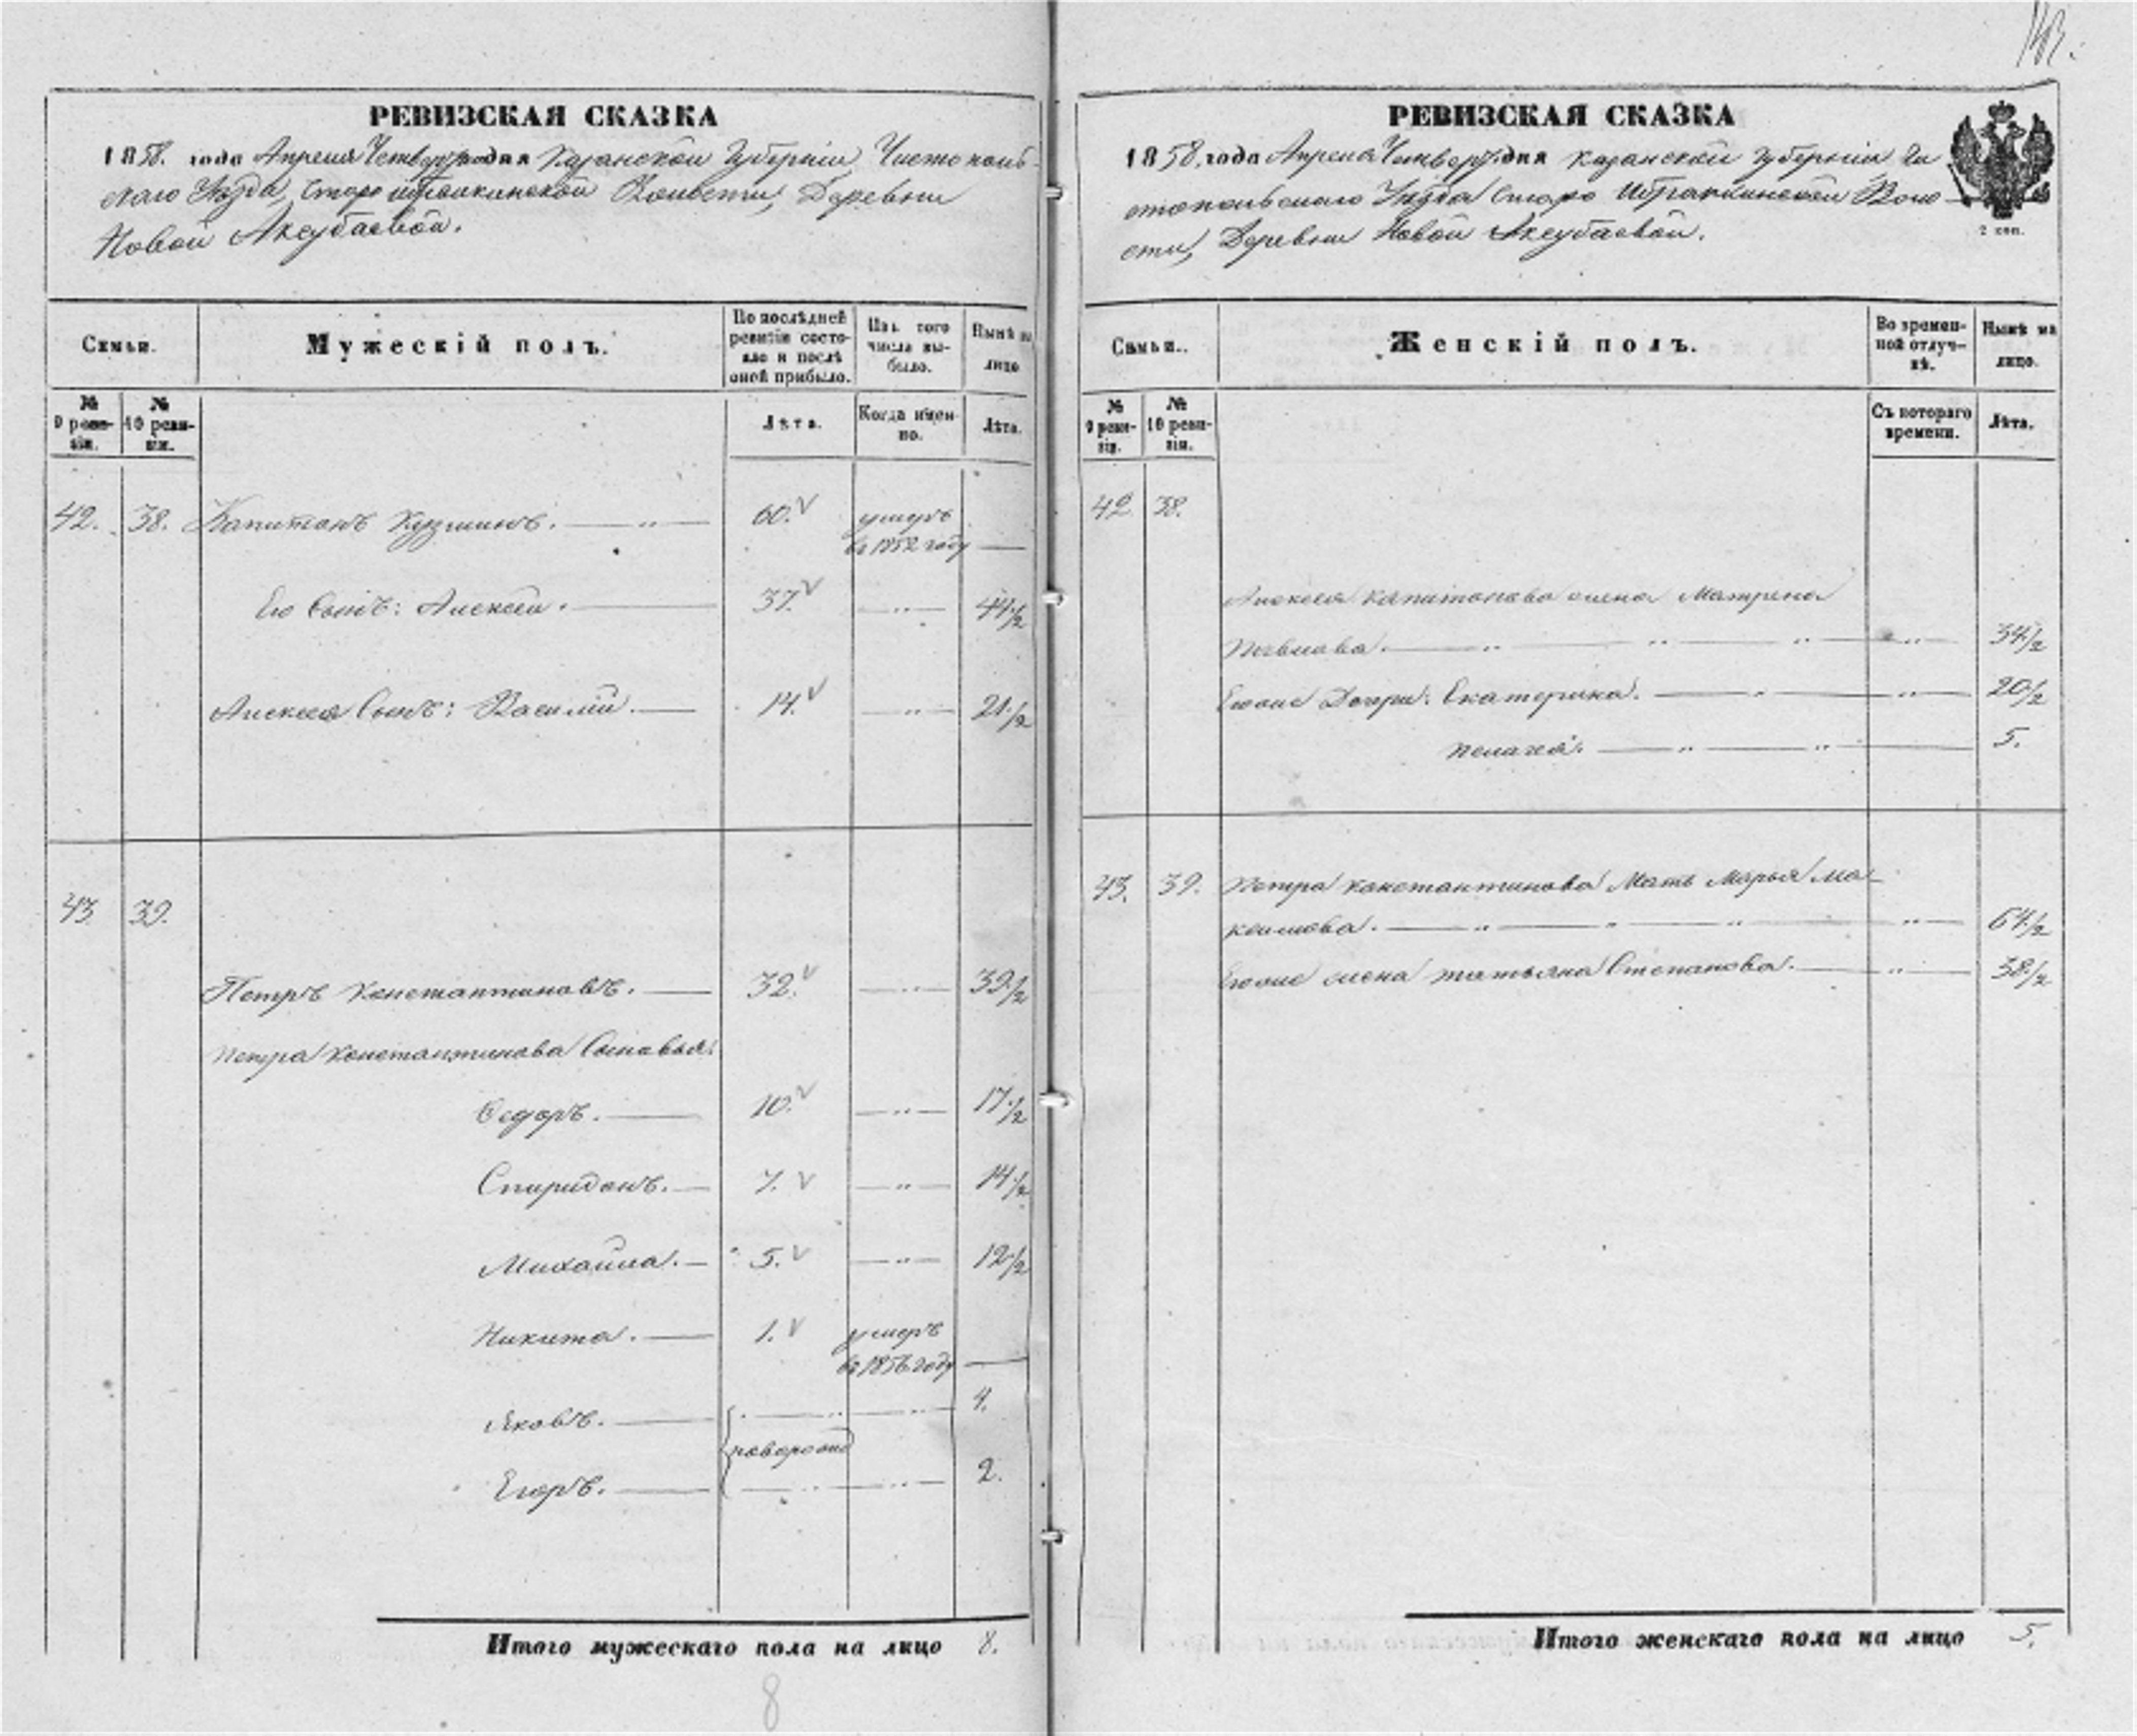 РЕВИЗСКАЯ СКАЗКА
1858. года Апреля дня Казанской Губернiи, Чистополь-
скаго Уезда, Старо Волости, Деревни
Новой Аксубаевой.
Семьи.
Мужескiй полъ.
По послѣдней ревизiи состо-
яло и послѣ оной прибыло.
Изъ того числа вы-
было.
Нынѣ на лицо
№ 9 реви-
зiи.
№ 10 реви-
зiи.
Лѣта.
Когда имен-
но.
Лѣта.
42. 38. Капитонъ Кузминъ. 60. умеръ
въ 1852 году
Его Сынъ: Алексей. 37. 44 1/2
Алексея Сынъ: Василiй. 14. 21 1/2
43. 39.
Петръ Константиновъ. 32. 39 1/2
Петра Константинова Сыновья:
Ѳедоръ. 10. 17 1/2
Спиридонъ. 7. 14 1/2
Михайла. 5. 12 1/2
Никита. 1. умеръ
въ 1856 году
Яковъ. 4.
Егоръ. 2.
Итого мужескаго пола на лицо 8.
8
РЕВИЗСКАЯ СКАЗКА
1858. года Апреля дня Казанской Губернiи, Чи
стопольскаго Уезда Старо Ибрайкинской Воло
сти, Деревни Новой Аксубаевой.
2 коп.
Семьи.
Женскiй полъ.
Во времен-
ной отлуч-
кѣ.
Нынѣ на лицо.
№ 9 реви-
зiи.
№ 10 реви-
зiи.
Съ котораго времени.
Лѣта.
42. 38.
Алексея Капитонова жена Матрена
34 1/2
Дочери: Екатерина. 20 1/2
Пелагея. 5.
43. 39. Петра Константинова Мать Марья Ма-
ксимова. 64 1/2
жена Татьяна Степанова. 38 1/2
Итого женскаго пола на лицо 5.